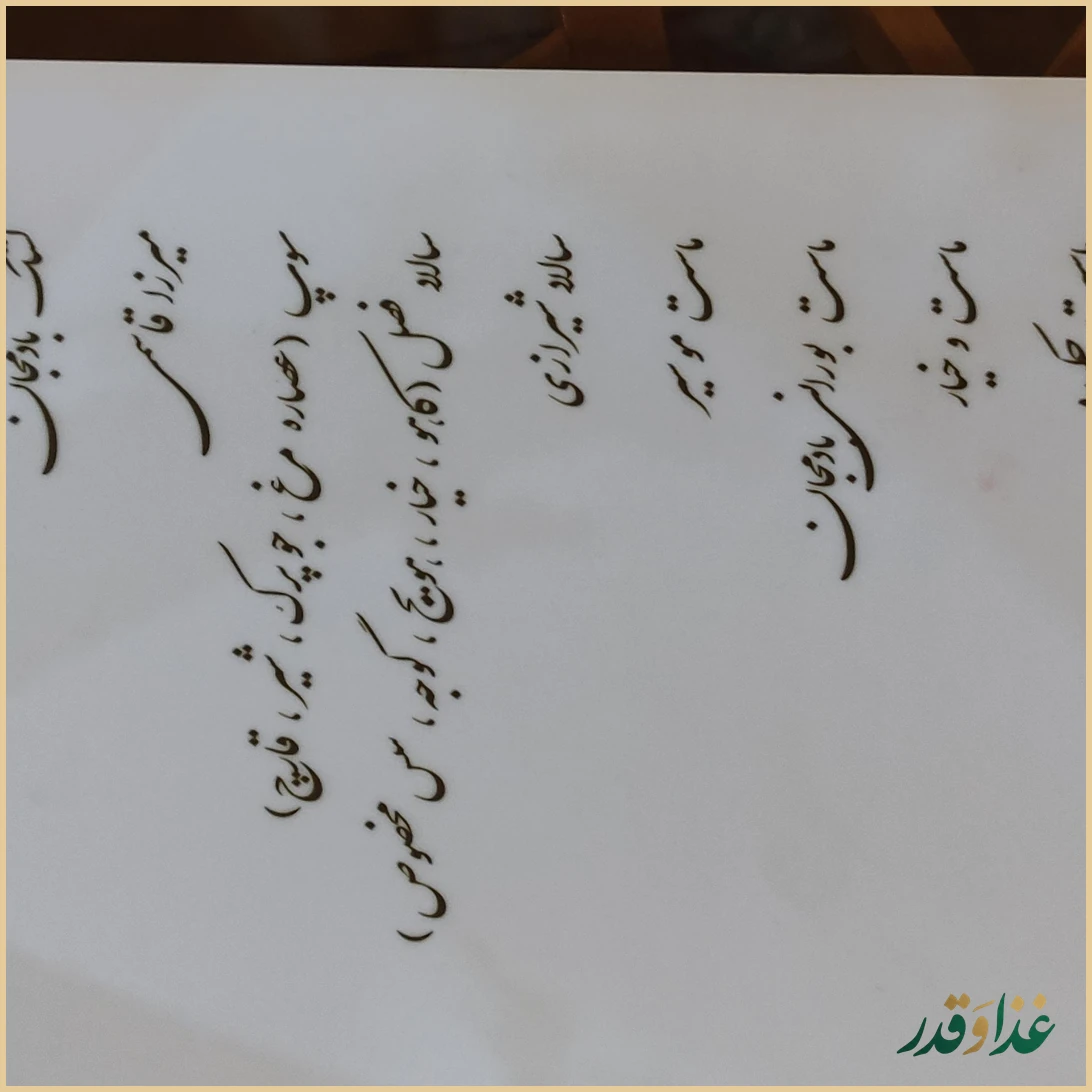 کشک بادمجان
میرزا قاسمی
سوپ (عصاره مرغ، جو پرک، شیر، قارچ)
سالاد فصل (کاهو، خیار، هویج، گوجه، سس مخصوص)
سالاد شیرازی
ماست موسیر
ماست بورانی بادمجان
ماست و خیار
غذا و قدر